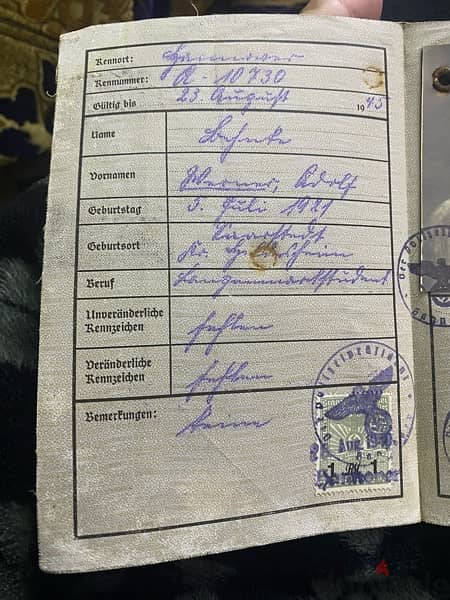 Kennort: Hannover
Kennummer: A - 10730
Gültig bis 23. August 1945
Name Behnke
Vornamen Werner, Adolf
Geburtstag 3. Juli 1921
Geburtsort Sarstedt
Kr. Hildesheim
Beruf
Unveränderliche
Kennzeichen fehlen
Veränderliche
Kennzeichen fehlen
Bemerkungen: keine
Der Polizeipräsident
1 RM 1